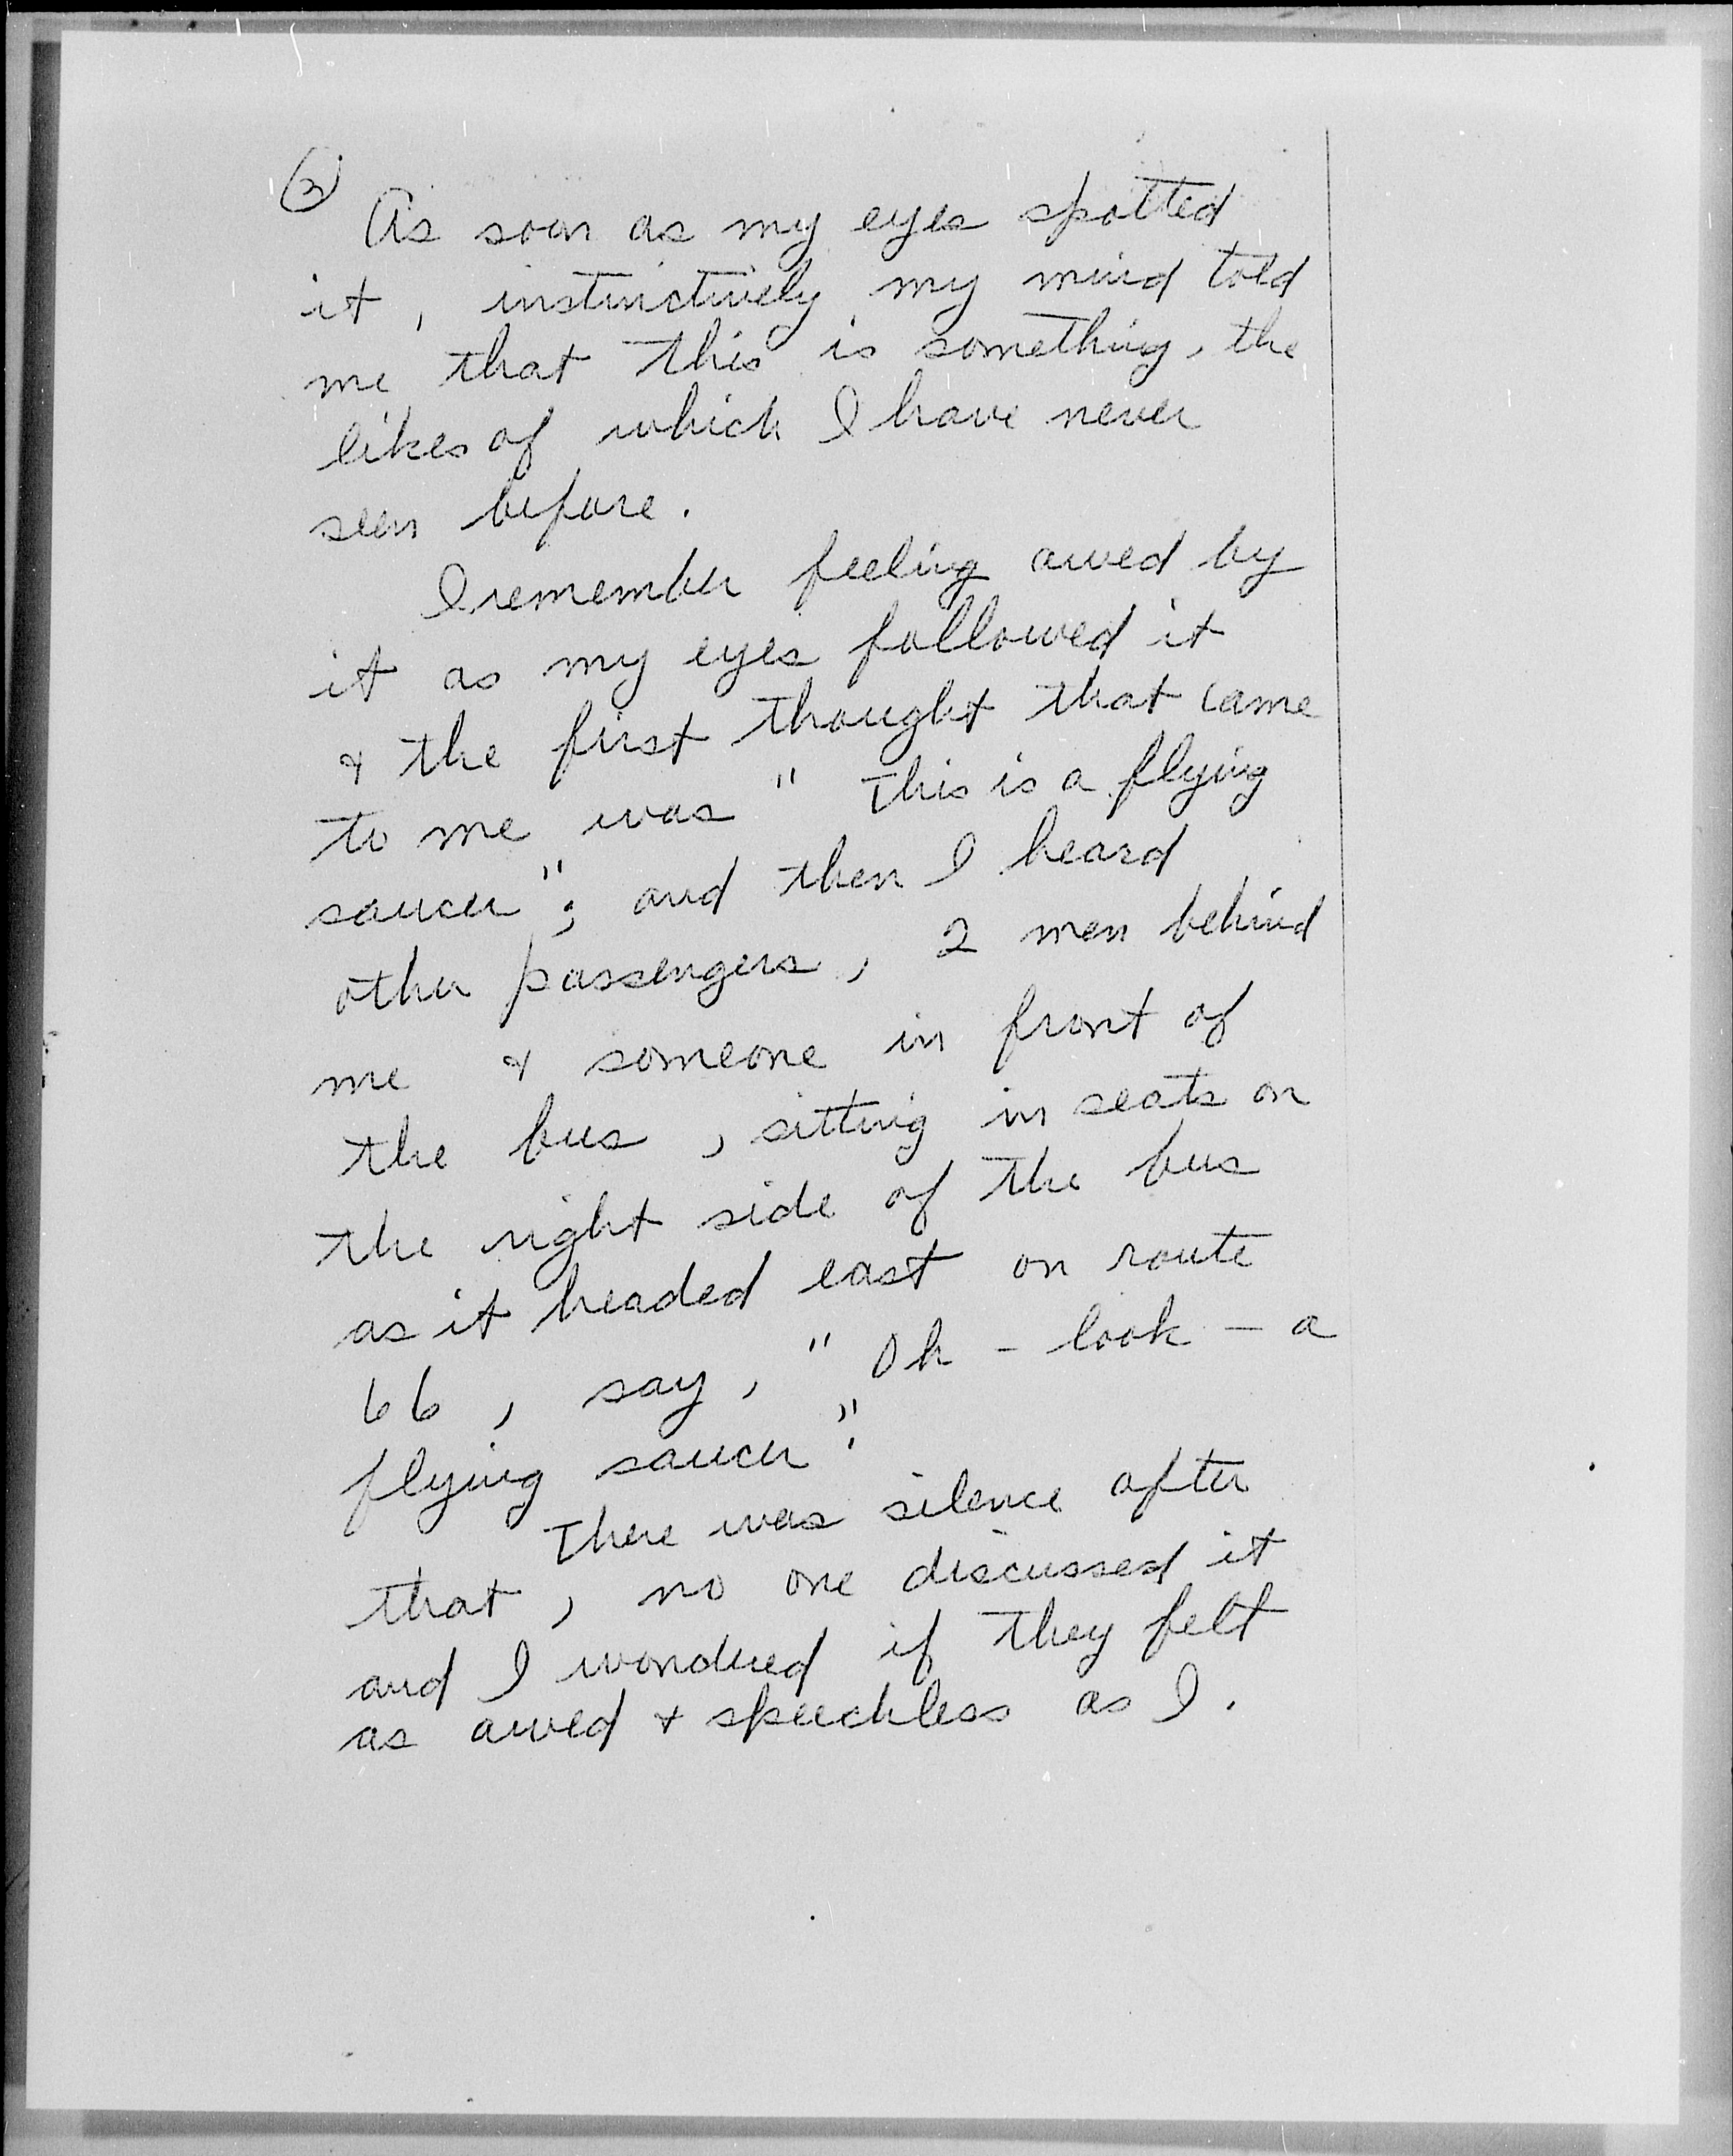 3
As soon as my eyes spotted
it, instinctively my mind told
me that this is something, the
likes of which I have never
seen before.
I remember feeling awed by
it as my eyes followed it
& the first thought that came
to me was "This is a flying
saucer"; and then I heard
other passengers, 2 men behind
me & someone in front of
the bus, sitting in seats on
the right side of the bus
as it headed east on route
66, say, "Oh - look - a
flying saucer".
There was silence after
that, no one discussed it
and I wondered if they felt
as awed & speechless as I.